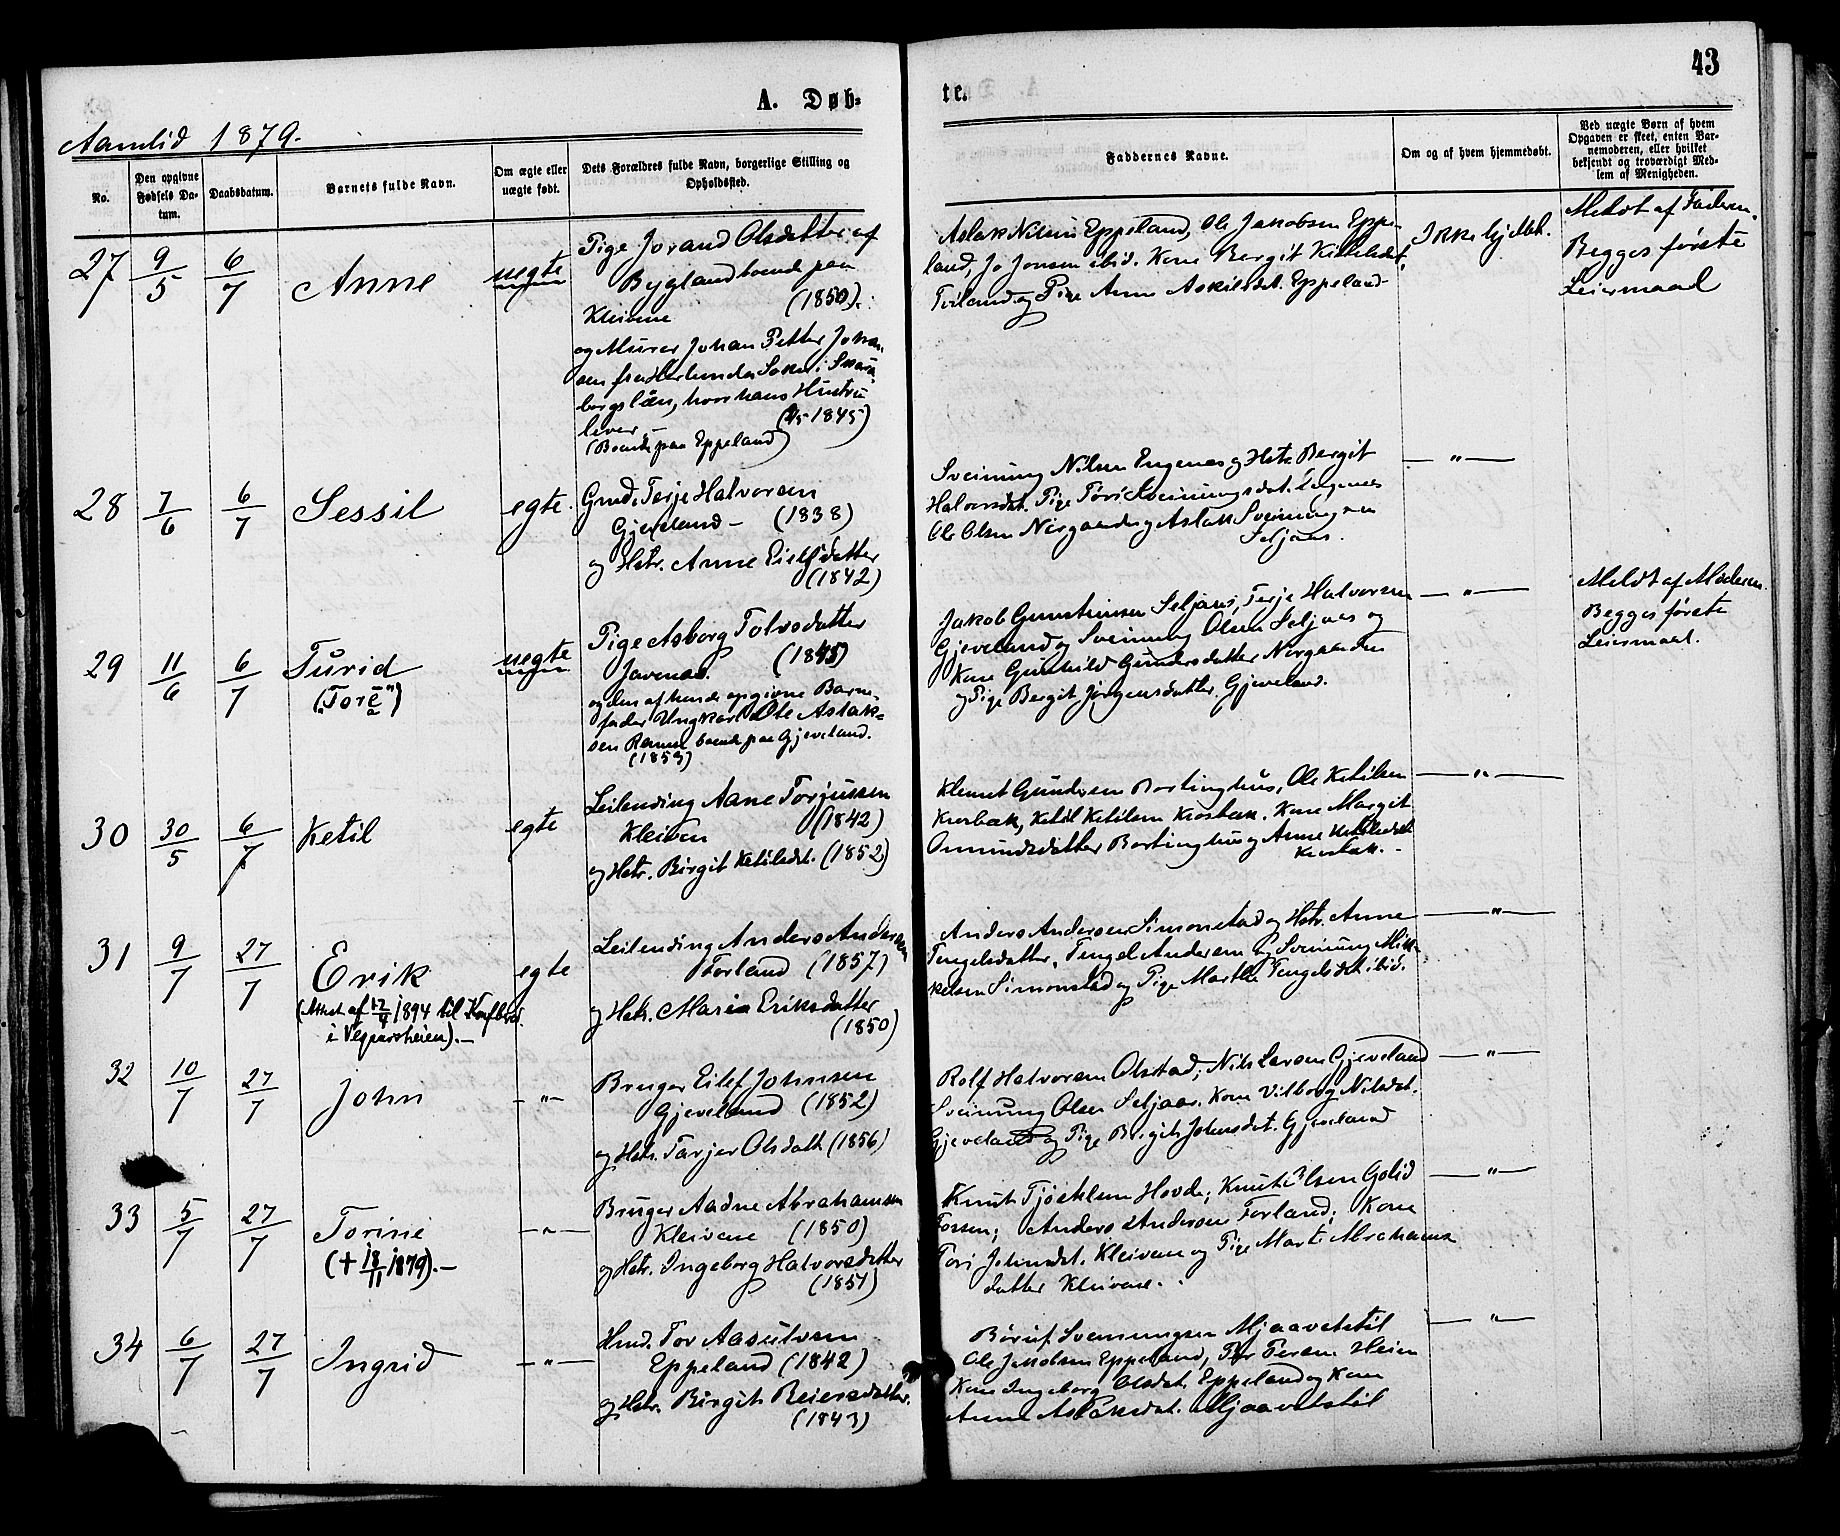 43
A. Døb-
te.
Aamlid 1879.
No.
Den opgivne Fødsels Datum.
Daabsdatum.
Barnets fulde Navn.
Om ægte eller uægte født.
Dets Forældres fulde Navn, borgerlige Stilling og Opholdssted.
Faddernes Navne.
Om og af hvem hjemmedøbt.
Ved uægte Børn af hvem Opgaven er skeet, enten Barnemoderen, eller hvilket bekjendt og troværdigt Medlem af Menigheden.
27 9/5 6/7 Anne uegte
Pige Jorand Olsdatter af
Bygland boende paa
Kleivene (1850).
og Murer Johan Petter Johan-
sen fra Herlunda Sokn i Skara-
borgslän, hvor hans Hustru
lever - (1845)
(Boende paa Eppeland)
Aslak Nilsen Eppeland, Ole Jakobsen Eppe-
land, Jo Jonsen ibid. Kone Bergit Kittelsdat.
Torland og Pige Anne Askilsdat. Eppeland-
Ikke hjdbt.
Meldt af Faderen.
Begges første
Leiermaal
28 7/6 6/7 Sessil egte.
Gmd. Terje Halvorsen
Gjeveland - (1838)
og Hstr. Anne Eilefsdatter
(1842)
Sveinung Nilsen Engenes og Hstr Bergit
Halvorsdat. Pige Tori Sveinungsdat. Engenes
Ole Olsen Norgaarden og Aslak Sveinungsen
Seljaas.
— " —
29 11/6 6/7 Turid uegte
("Tore")
Pige Asborg Tolvsdatter
Javenæs. (1845)
og den af hende opgivne Barne-
fader Ungkarl Ole Aslak-
sen Ramse boende paa Gjeveland.
(1853)
Jakob Gunsteinsen Seljaas, Terje Halvorsen
Gjeveland og Sveinung Olsen Seljaas og
Kone Gunhild Gundersdatter Norgaarden
og Pige Bergit Jørgensdatter Gjeveland.
— " —
Meldt af Moderen.
Begges første
Leiermaal.
30 30/5 6/7 Ketil egte
Leilending Aane Torjussen
Kleiven (1842)
og Hstr. Birgit Ketilsdat. (1852)
Klemet Gundersen Bortinghus, Ole Ketilsen
Krosbak, Ketil Ketilsen Krosbak. Kone Margit
Omundsdatter Bortinghus og Anne Ketilsdat
Krosbak.-
— " —
31 9/7 27/7 Erik egte
(Attest af 12/4 1894 til Konfbrd.
i Vegaarsheien).-
Leilending Anders Andersen
Torland (1857)
og Hstr. Maria Eriksdatter
(1850)
Anders Andersen Simonstad og Hstr. Anne
Tengelsdatter, Tengel Andersen og Sveinung Mik-
kelsen Simonstad og Pige Marthe Tengelsdat ibid.
— " —
32 10/7 27/7 John - " -
Bruger Eilef Johnsen
Gjeveland (1852)
og Hstr. Tarjer Olsdatt (1856)
Rolf Halvorsen Olstad; Nils Larsen Gjeveland
Sveinung Olsen Seljaas. Kone Vilborg Nilsdat.
Gjeveland og Pige Birgit Johnsdat. Gjeveland
— " —
33 5/7 27/7 Torine - " -
(+ 18/11 1879).-
Bruger Aadne Abrahamsen
Kleivene (1850)
og Hstr. Ingeborg Halvorsdatter
(1851)
Knut Tjøstelsen Hovde; Knut Olsen Golid
Fossen; Anders Andersen Torland; Kone
Tori Johnsdat. Kleivene og Pige Marti Abrahams-
datter Kleivene.
— " —
34 6/7 27/7 Ingrid - " -
Hmd. Tor Aasulvsen
Eppeland (1842)
og Hstr. Birgit Reiersdatter.
(1843)
Børuf Sveinungsen Mjaavatstøl
Ole Jakobsen Eppeland, Per Persen Heien
Kone Ingeborg Olsdat. Eppeland og Kone
Anne Aslaksdat. Mjaavatstøl
— " —